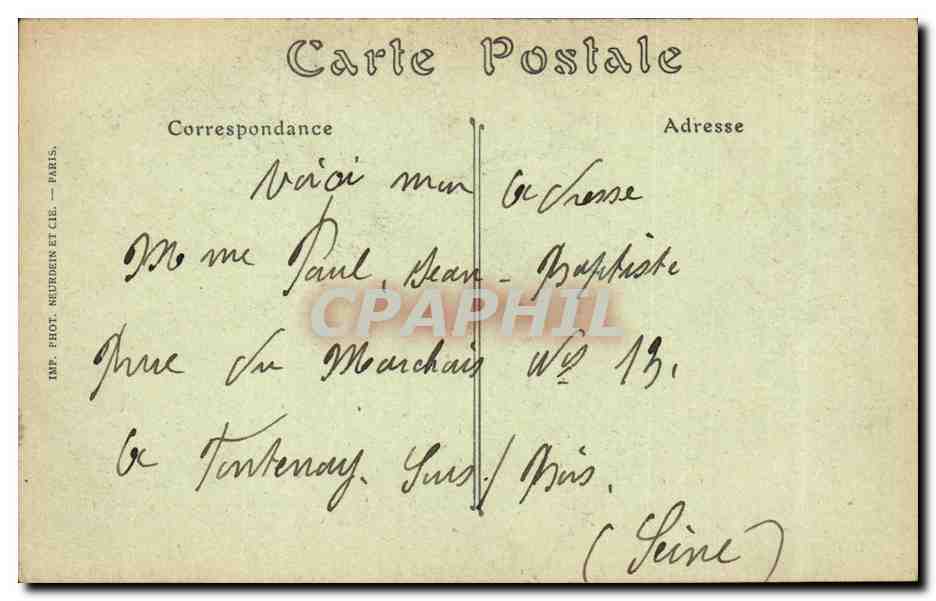 Carte Postale
Correspondance
Adresse
IMP. PHOT. NEURDEIN ET CIE. — PARIS.
Voici mon adresse
Mme Paul, Jean-Baptiste
rue du Marchais No 13.
a Fontenay. Sous/Bois.
(Seine)
CPAPHIL